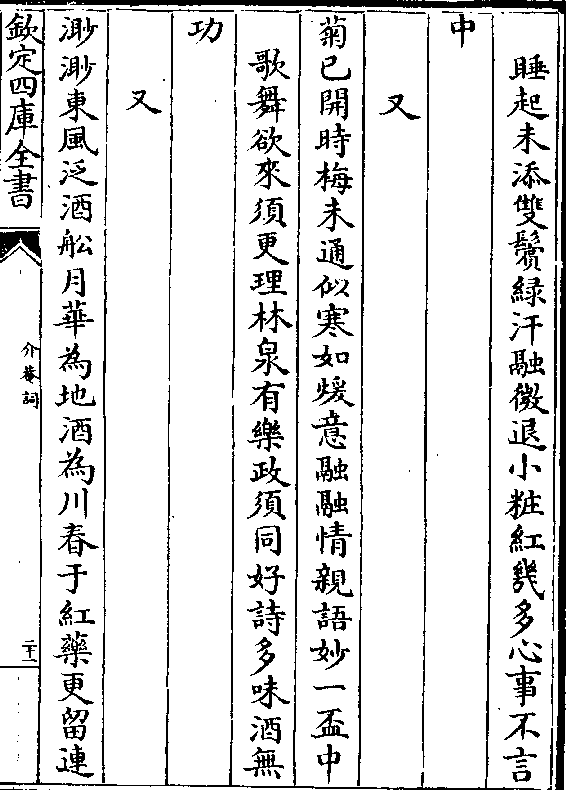 睡起未添雙鬢緑汗融微退小粧紅幾多心事不言
中
又
菊已開時梅未通似寒如煖意融融情親語妙一盃中
歌舞欲來須更理林泉有樂政須同好詩多味酒無
功
又
渺渺東風泛酒舩月華為地酒為川春于紅藥更留連
欽定四庫全書
介菴詞
二十一